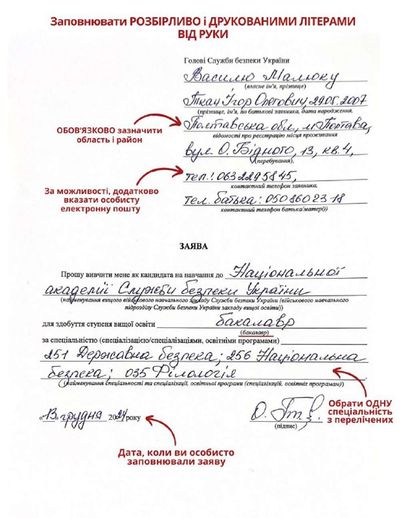 Заповнювати РОЗБІРЛИВО і ДРУКОВАНИМИ ЛІТЕРАМИ
ВІД РУКИ
Голові Служби безпеки України
Василю Малюку
(власне ім'я, прізвище)
Ткач Ігор Олегович, 29.05.2007
(прізвище, ім'я, по батькові заявника, дата народження,
Полтавська обл., м. Полтава,
відомості про реєстрацію місця проживання
вул. О. Бідного, 13, кв. 4,
(перебування),
тел.: 0632295845,
контактний телефон заявника,
тел. батька: 0503602318
контактний телефон батька/матері)
ОБОВ'ЯЗКОВО зазначити
область і район
За можливості, додатково
вказати особисту
електронну пошту
ЗАЯВА
Прошу вивчити мене як кандидата на навчання до Національної
академії Служби безпеки України
(найменування вищого військового навчального закладу Служби безпеки України (військового навчального
підрозділу Служби безпеки України закладу вищої освіти))
для здобуття ступеня вищої освіти бакалавр
(бакалавр)
за спеціальністю (спеціалізацією/спеціалізаціями, освітніми програмами)
251 Державна безпека; 256 Національна
безпека; 035 Філологія
(найменування спеціальності та спеціалізації, освітньої програми (спеціалізацій, освітніх програм))
«13» грудня 2024 року
(підпис)
Обрати ОДНУ
спеціальність
з перелічених
Дата, коли ви особисто
заповнювали заяву